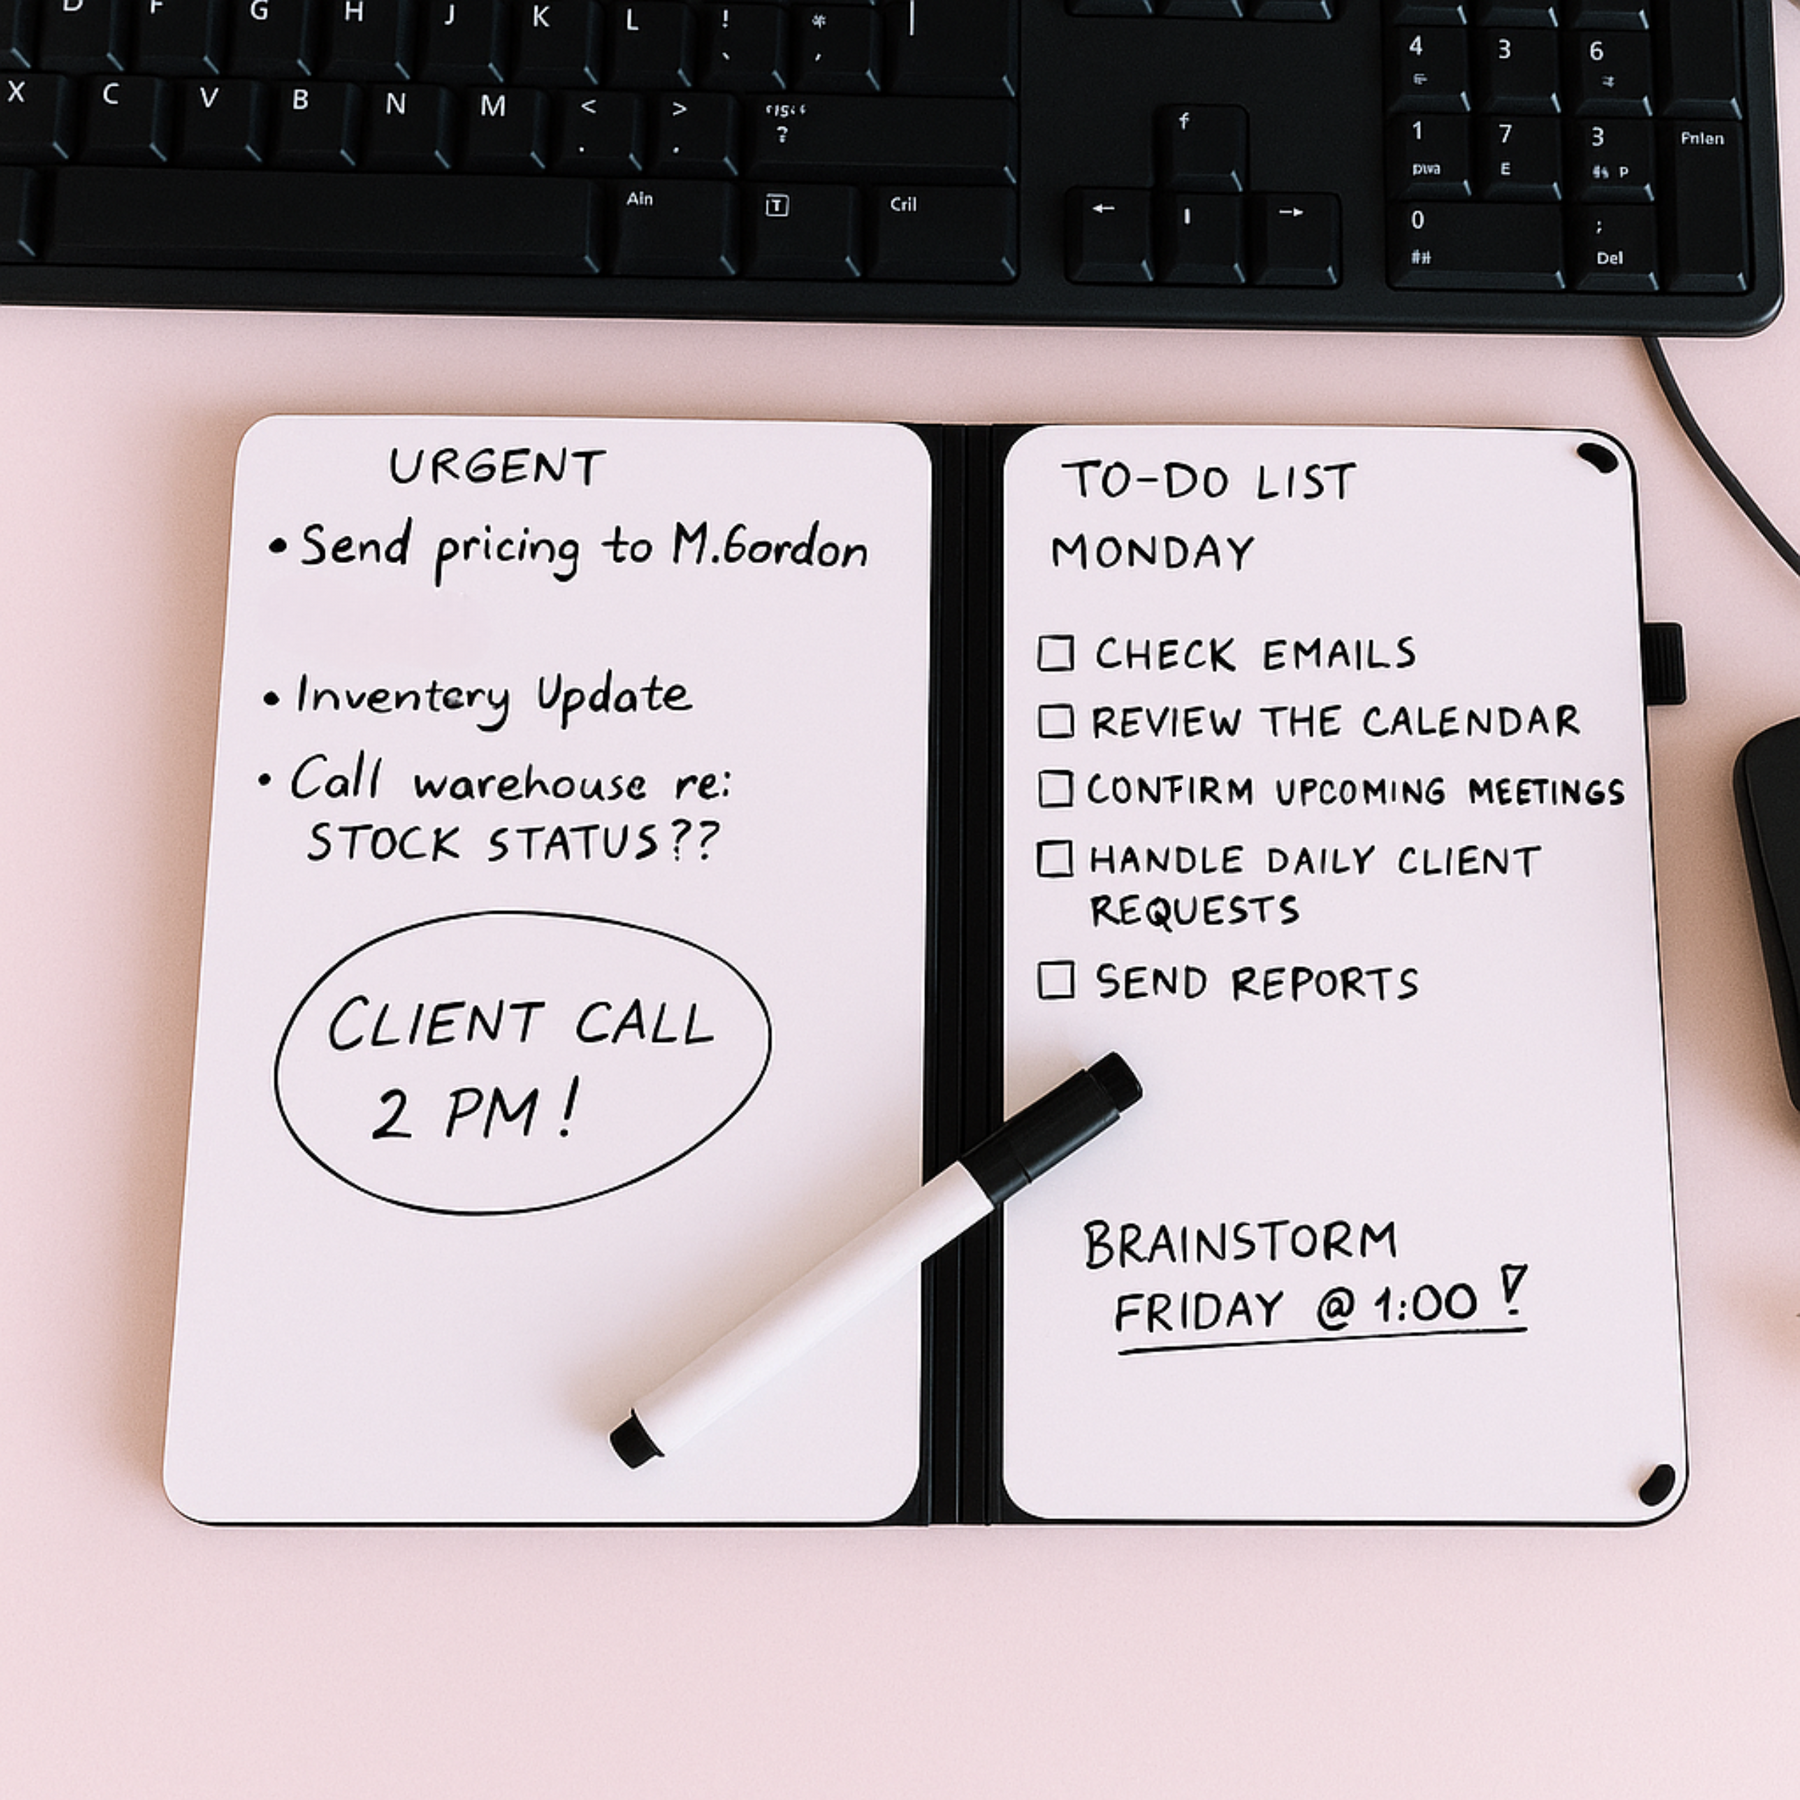 D F G H J K L ! * |
` ,
X C V B N M < > ?
. .
Ain T Cril
f
← | →
4 3 6
1 7 3 Fnlen
pwa E P
0 ;
## Del
URGENT
• Send pricing to M.Gordon
• Inventory Update
• Call warehouse re:
STOCK STATUS??
CLIENT CALL
2 PM!
TO-DO LIST
MONDAY
☐ CHECK EMAILS
☐ REVIEW THE CALENDAR
☐ CONFIRM UPCOMING MEETINGS
☐ HANDLE DAILY CLIENT
REQUESTS
☐ SEND REPORTS
BRAINSTORM
FRIDAY @ 1:00 !